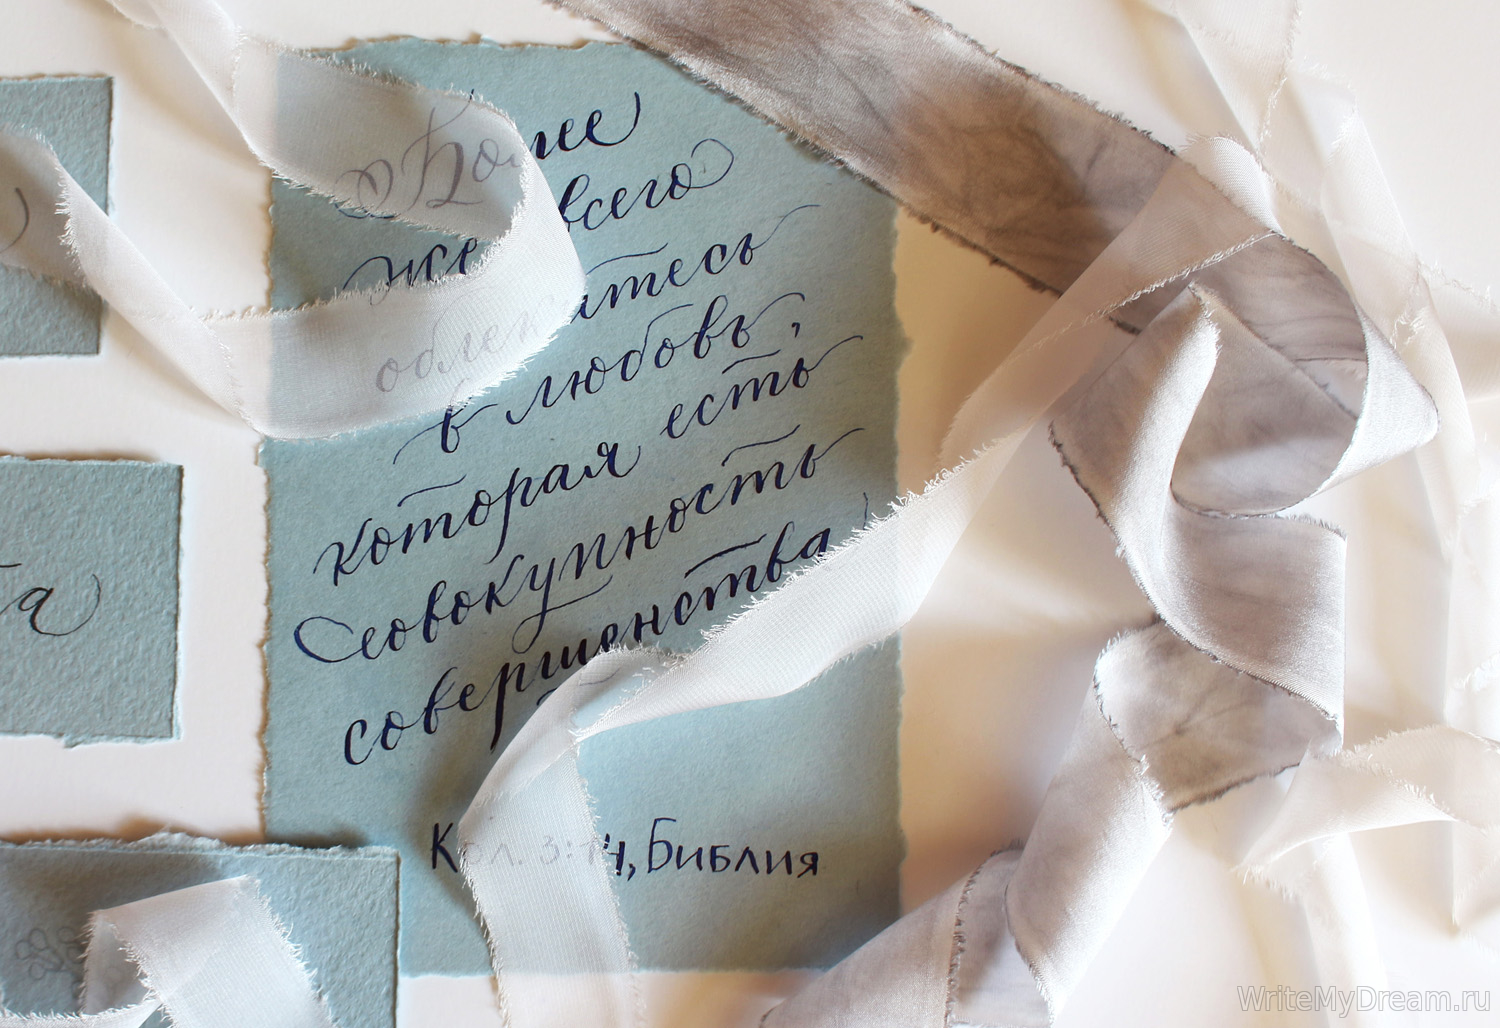 Более
же всего
облекитесь
в любовь,
которая есть
совокупность
совершенства
Кол. 3:14, Библия
та
WriteMyDream.ru